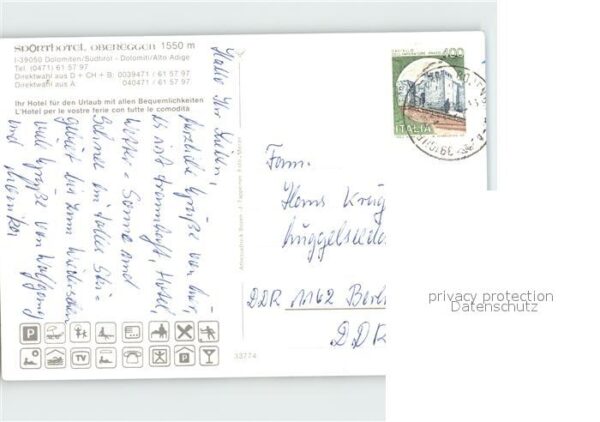 SPORTHOTEL OBEREGGEN 1550 m
I-39050 Dolomiten/Südtirol - Dolomiti/Alto Adige
Tel. (0471) 61 57 97
Direktwahl aus D + CH + B: 0039471 / 61 57 97
Direktwahl aus A 040471 / 61 57 97
Ihr Hotel für den Urlaub mit allen Bequemlichkeiten
L'Hotel per le vostre ferie con tutte le comodità
Hallo Ihr Lieben,
herzliche Grüße von hier.
Es ist traumhaft, Hotel,
Wetter = Sonne und
Schnee im tollen Ski-
gebiet bis zum Wiedersehen
viele Grüße von Wolfgang
und Monika
33774
400
ITALIA
Fam.
Hans Krüg
Müggelseeda
DDR 1162 Berl
DDR
privacy protection
Datenschutz